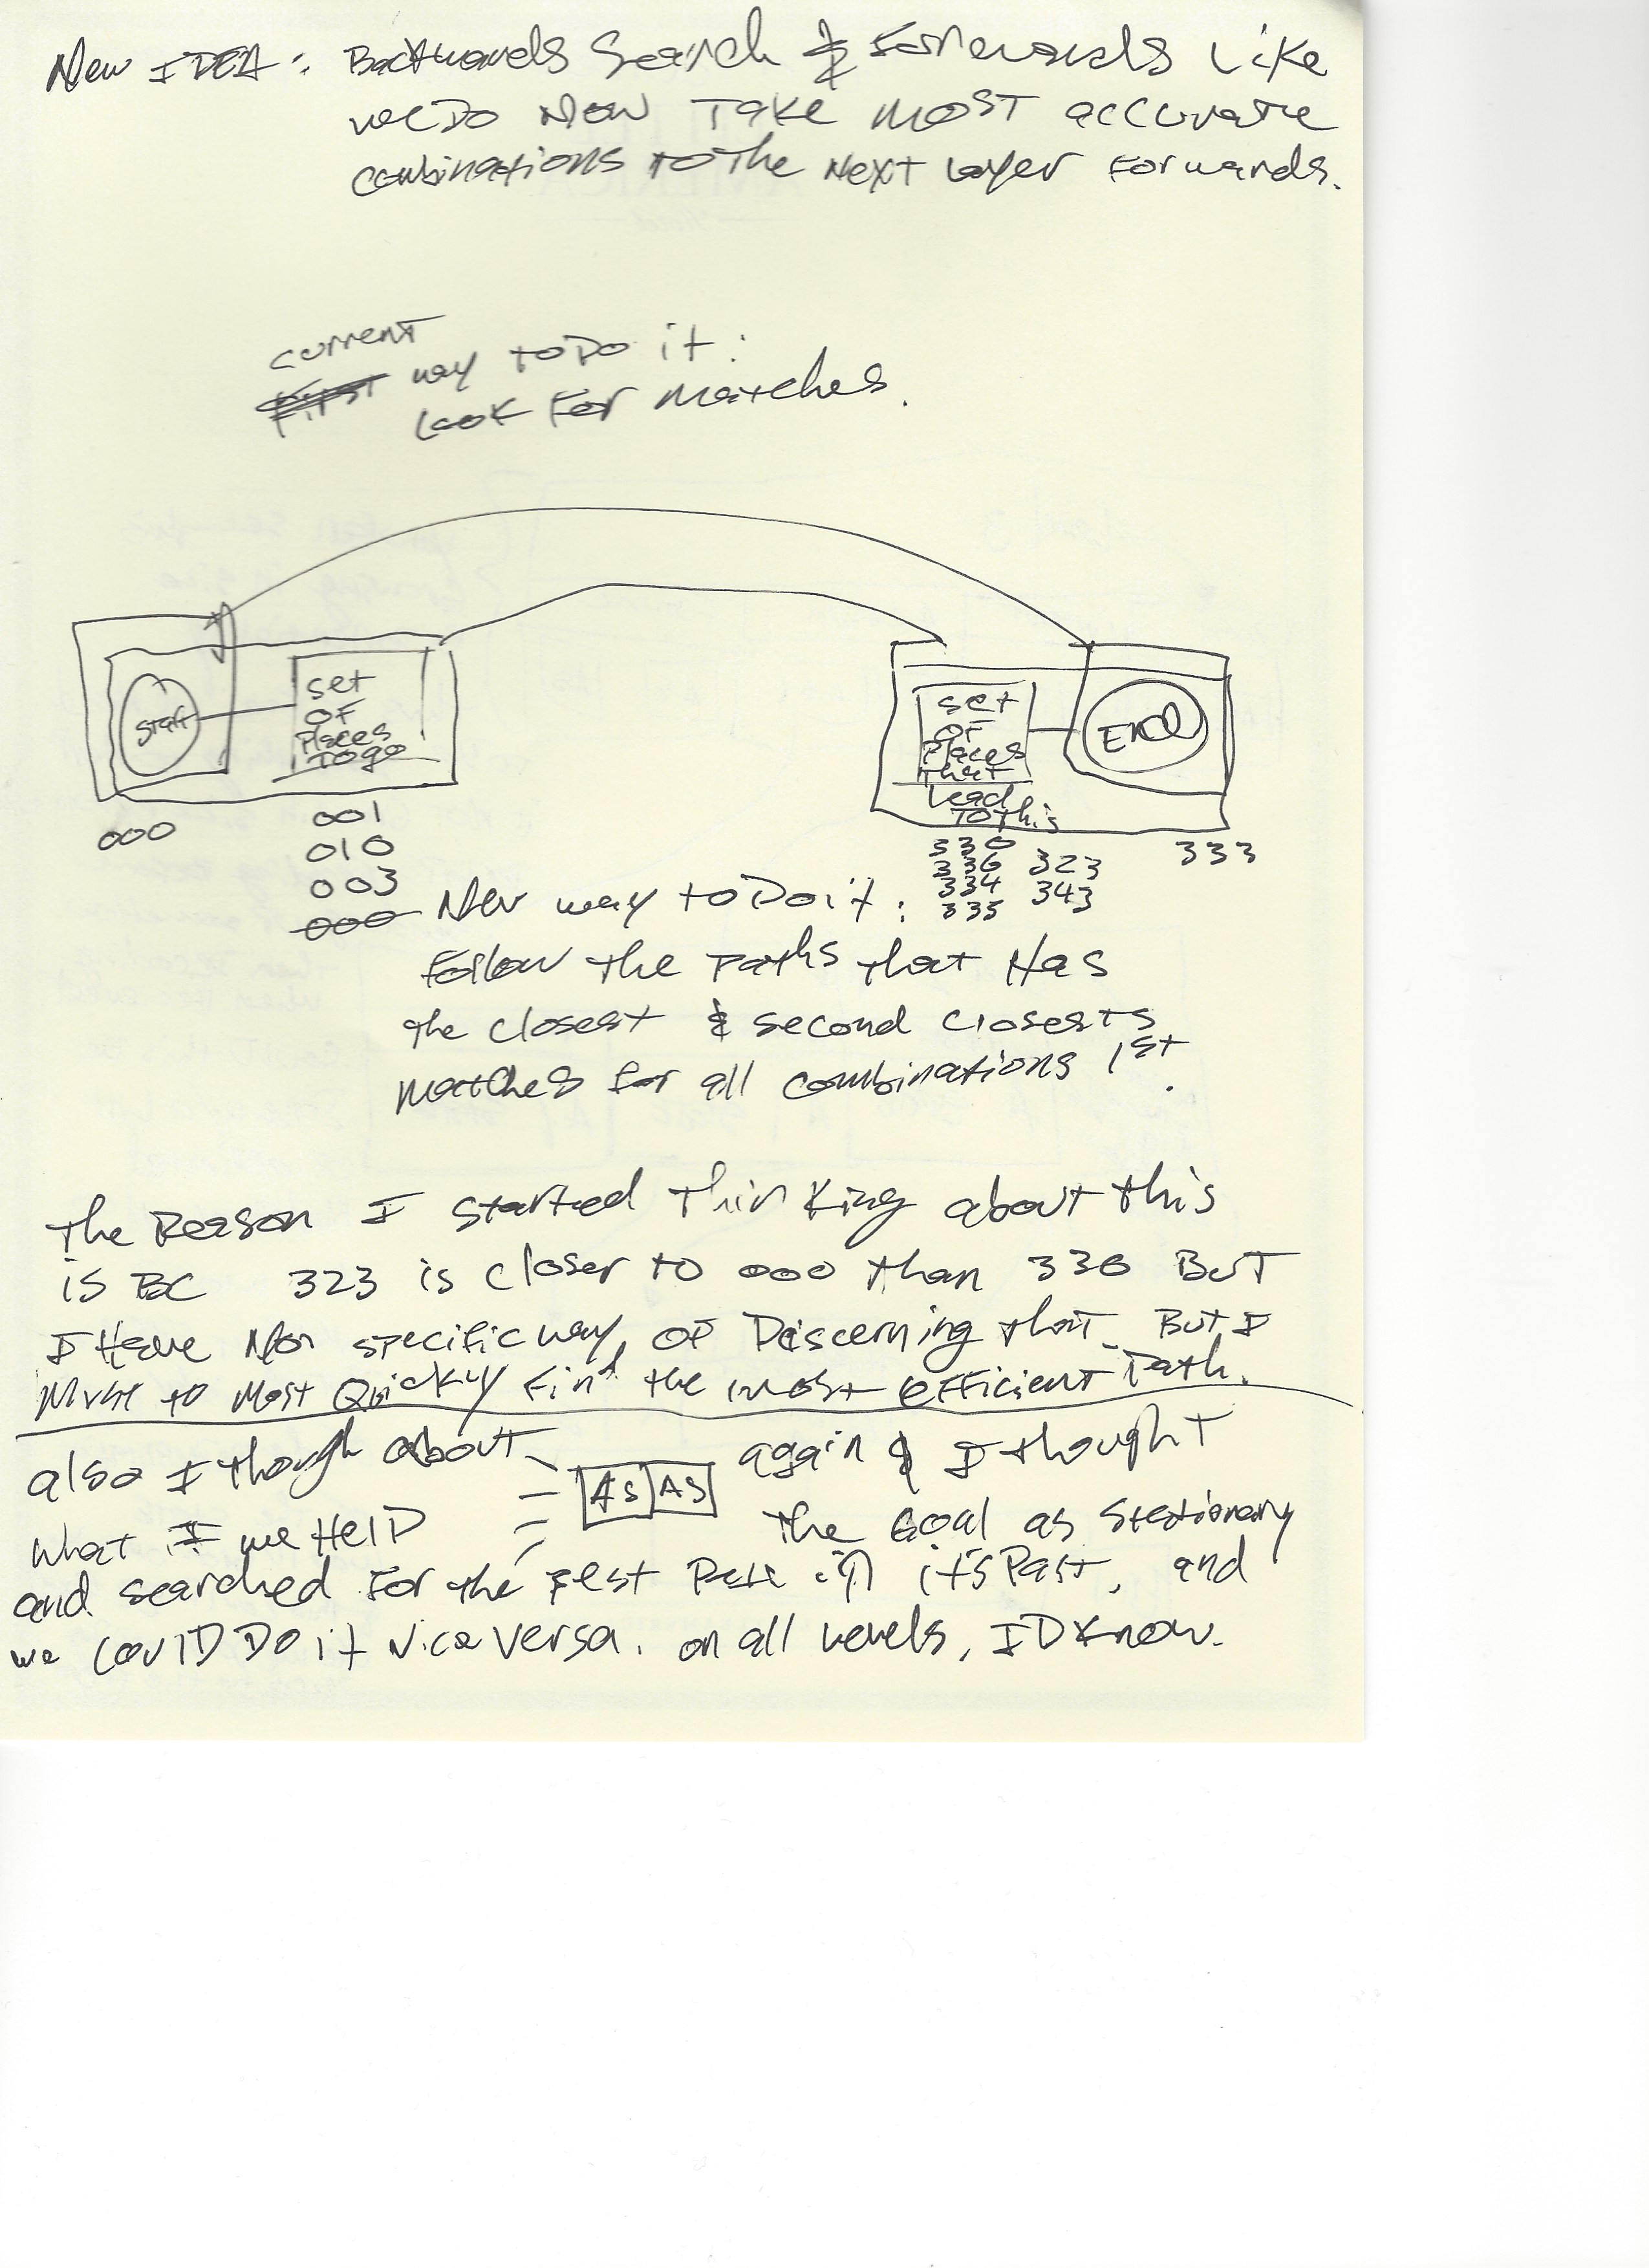 New IDEA: Backwards Search & Forwards Like
we Do Now Take most accurate
combinations to the Next Layer Forwards.
current
First way to Do it:
Look For matches.
start
set
OF
Places
To go
000
001
010
003
000
set
OF
Places
that
Lead
To this
End
330
336 323
334 343
335
333
New way to Do it:
Follow the Paths that Has
the closest & second closests
matches for all combinations 1st.
The Reason I started Thinking about this
is BC 323 is closer to 000 than 330 BuT
I Have Non specific way OF Discerning that. But I
Must to Most Quickly Find the most efficient Path.
also I though about = AS AS again & I thought
What IF we HelD the Goal as Stationary
and searched For the Best in it's Past, and
we CoulD Do it vice versa. on all levels, I D Know.